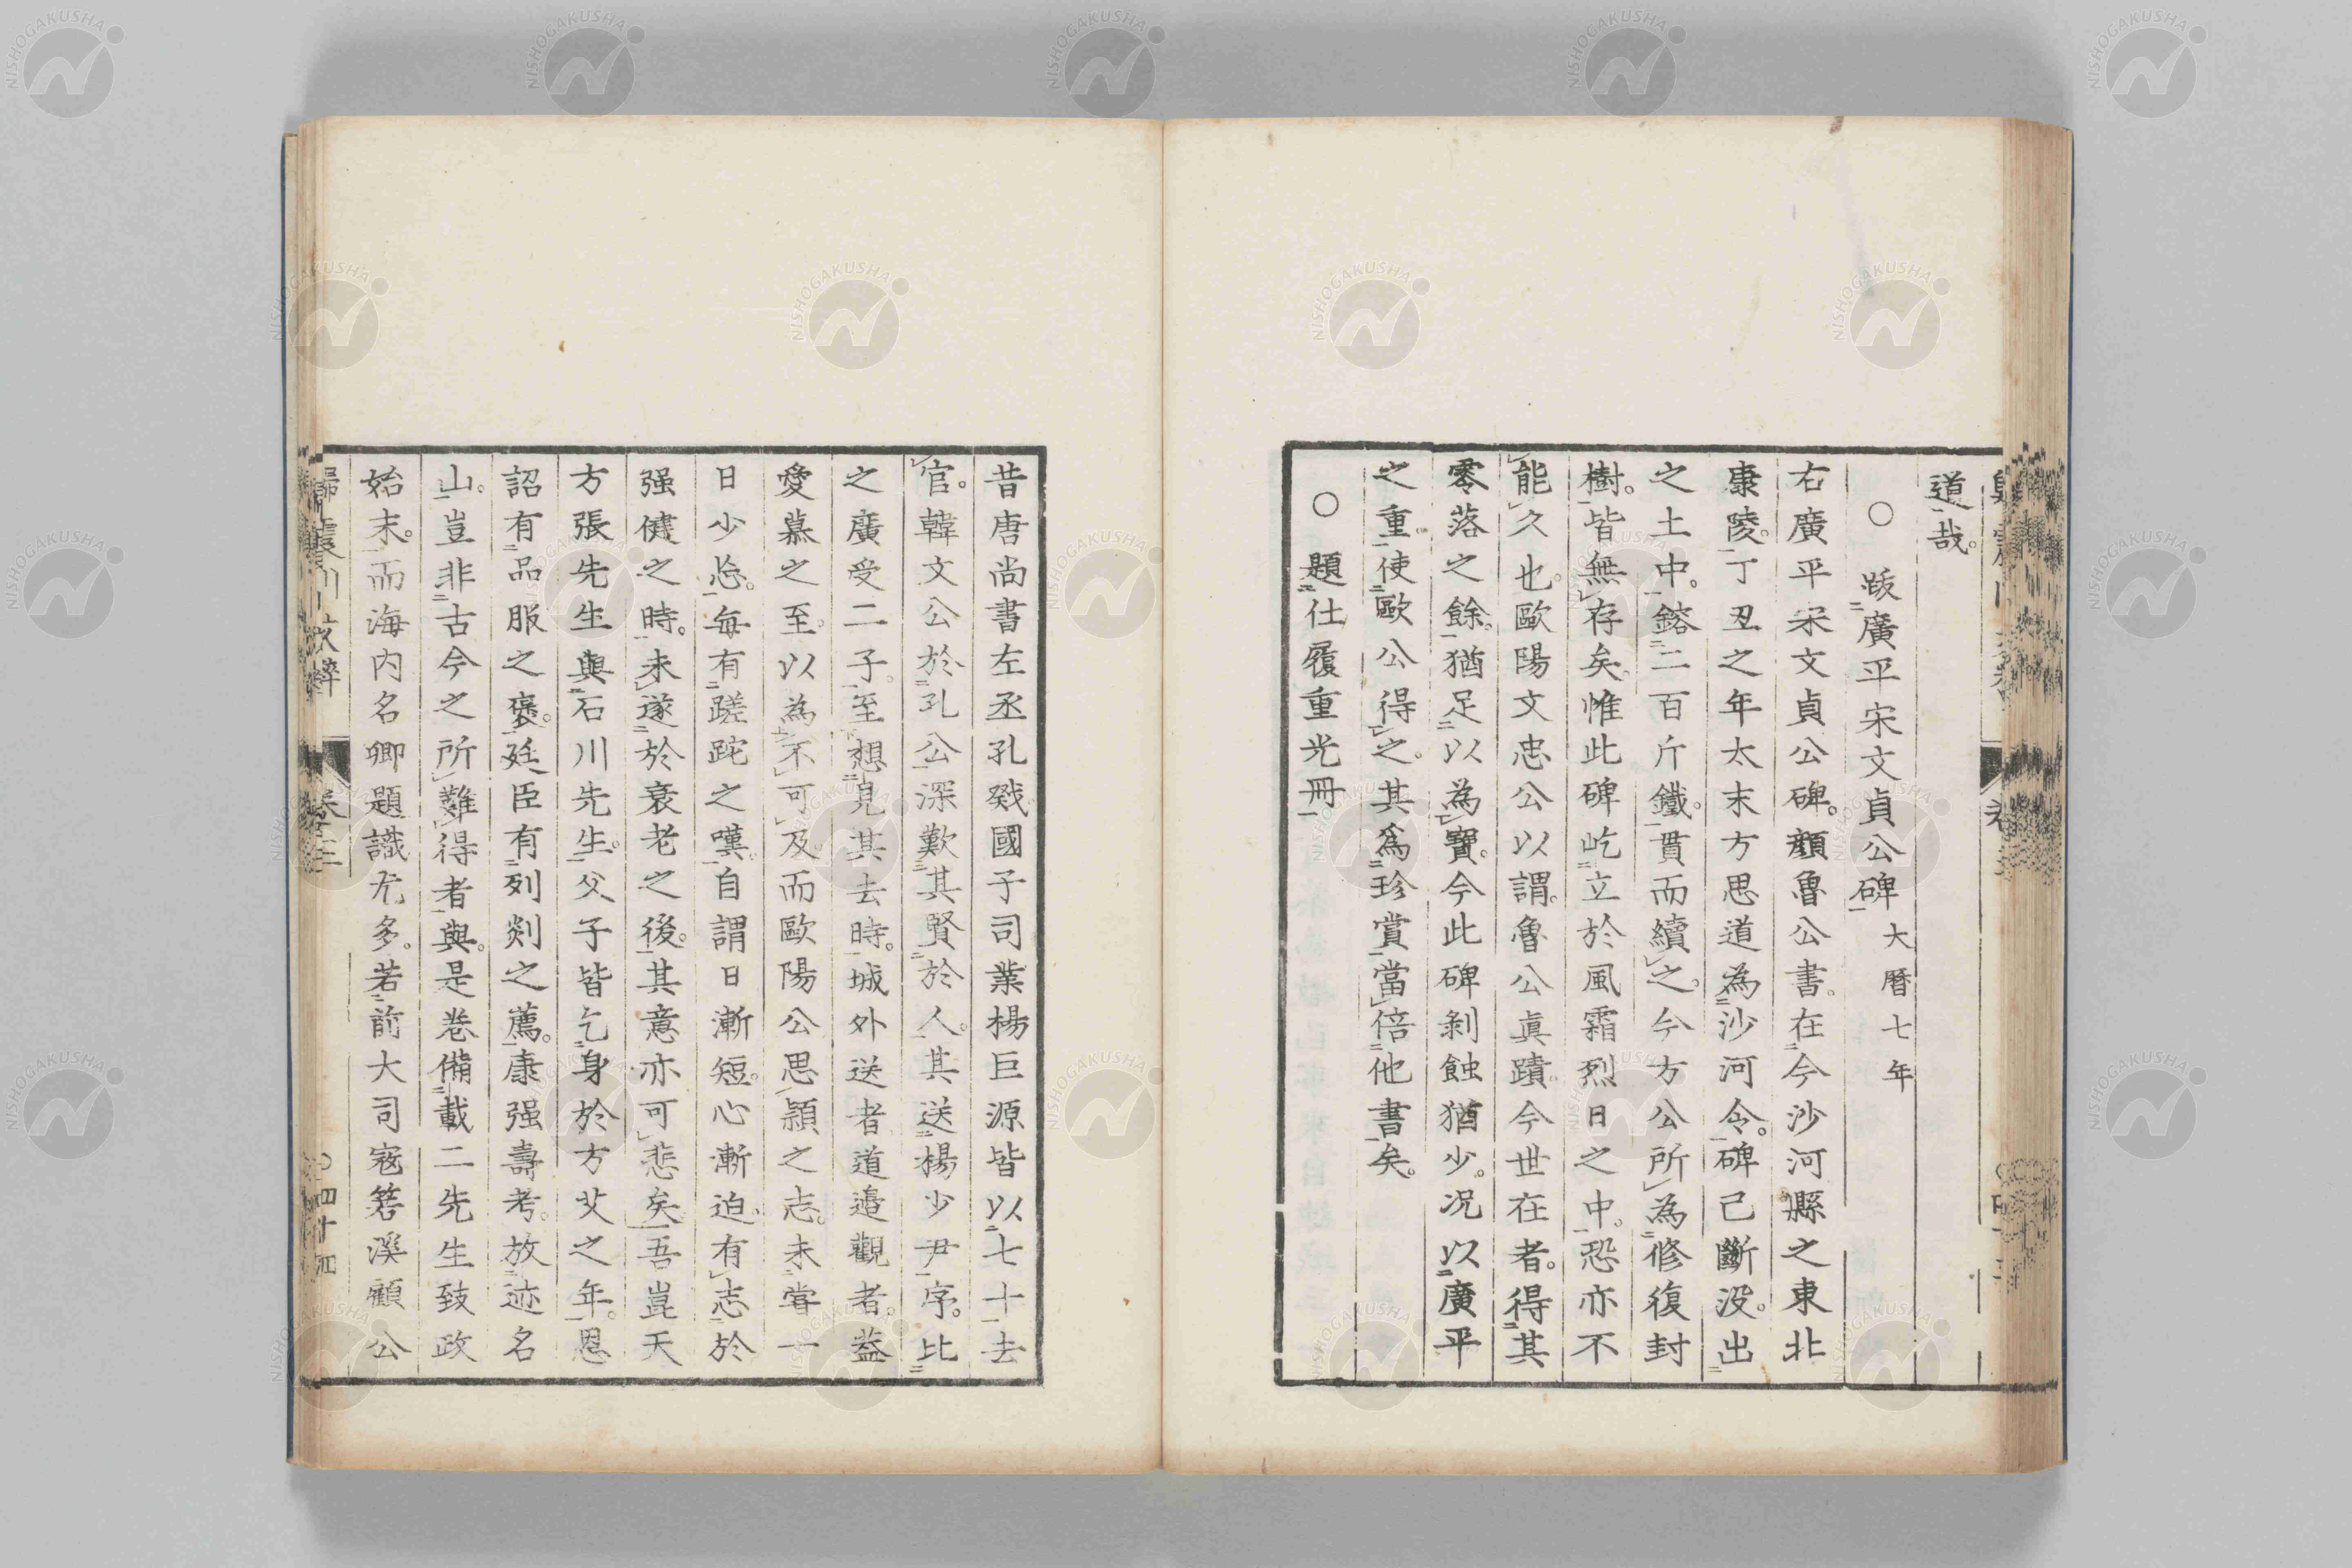 道哉。
○ 跋廣平宋文貞公碑 大曆七年
右廣平宋文貞公碑。顏魯公書。在今沙河縣之東北
康陵。丁丑之年太末方思道為沙河令。碑已斷沒。出
之土中。鎔二百斤鐵。貫而續之。今方公所為修復封
樹。皆無存矣。惟此碑屹立於風霜烈日之中。恐亦不
能久也。歐陽文忠公以謂。魯公眞蹟。今世在者。得其
零落之餘。猶足以為寶。今此碑剝蝕猶少。况以廣平
之重。使歐公得之。其為珍賞。當倍他書矣。
○ 題仕履重光冊
昔唐尚書左丞孔戣。國子司業楊巨源皆以七十去
官。韓文公於孔公。深歎其賢於人。其送楊少尹序。比
之廣受二子。至想見其去時。城外送者道邉觀者。葢
愛慕之至。以為不可及。而歐陽公思潁之志。未嘗一
日少忘。每有蹉跎之嘆。自謂日漸短。心漸迫。有志於
强健之時。未遂於衰老之後。其意亦可悲矣。吾崑天
方張先生與石川先生。父子皆乞身於方艾之年。恩
詔有品服之褒。廷臣有列剡之薦。康强壽考。放迹名
山。豈非古今之所難得者與。是卷備載二先生致政
始末。而海内名卿題識尤多。若前大司寇箬溪顧公
歸震川文粹 卷三 ○四十四
NISHOGAKUSHA